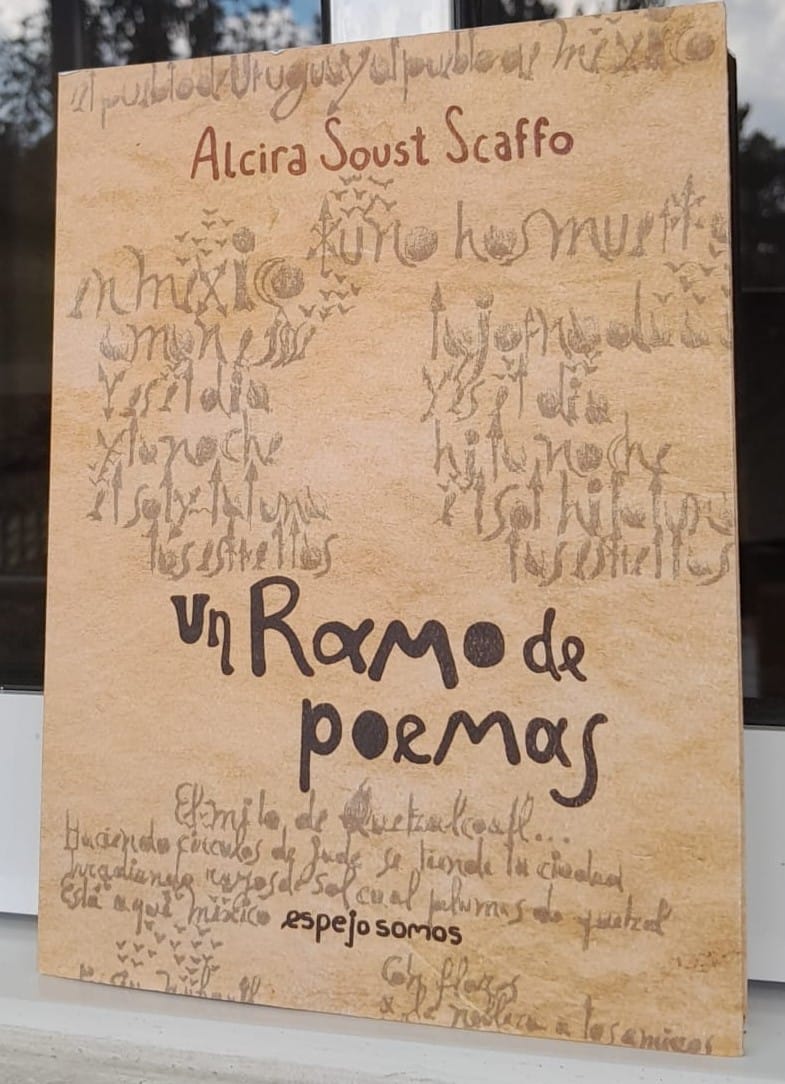 el pueblo de Uruguay al pueblo de méxico
Alcira Soust Scaffo
tuno ha muerto
en méxico
amanesse
y es el dia
y la noche
el sol y la luna
las estrellas
y es el dia
ni la noche
el sol ni la luna
las estrellas
un Ramo de
poemas
El mito de Quetzalcoatl...
Haciendo círculos de jade se tiende la ciudad
Irradiando rayos de sol cual plumas de quetzal
Está aquí méxico
espejo somos
Con flores
a los amigos